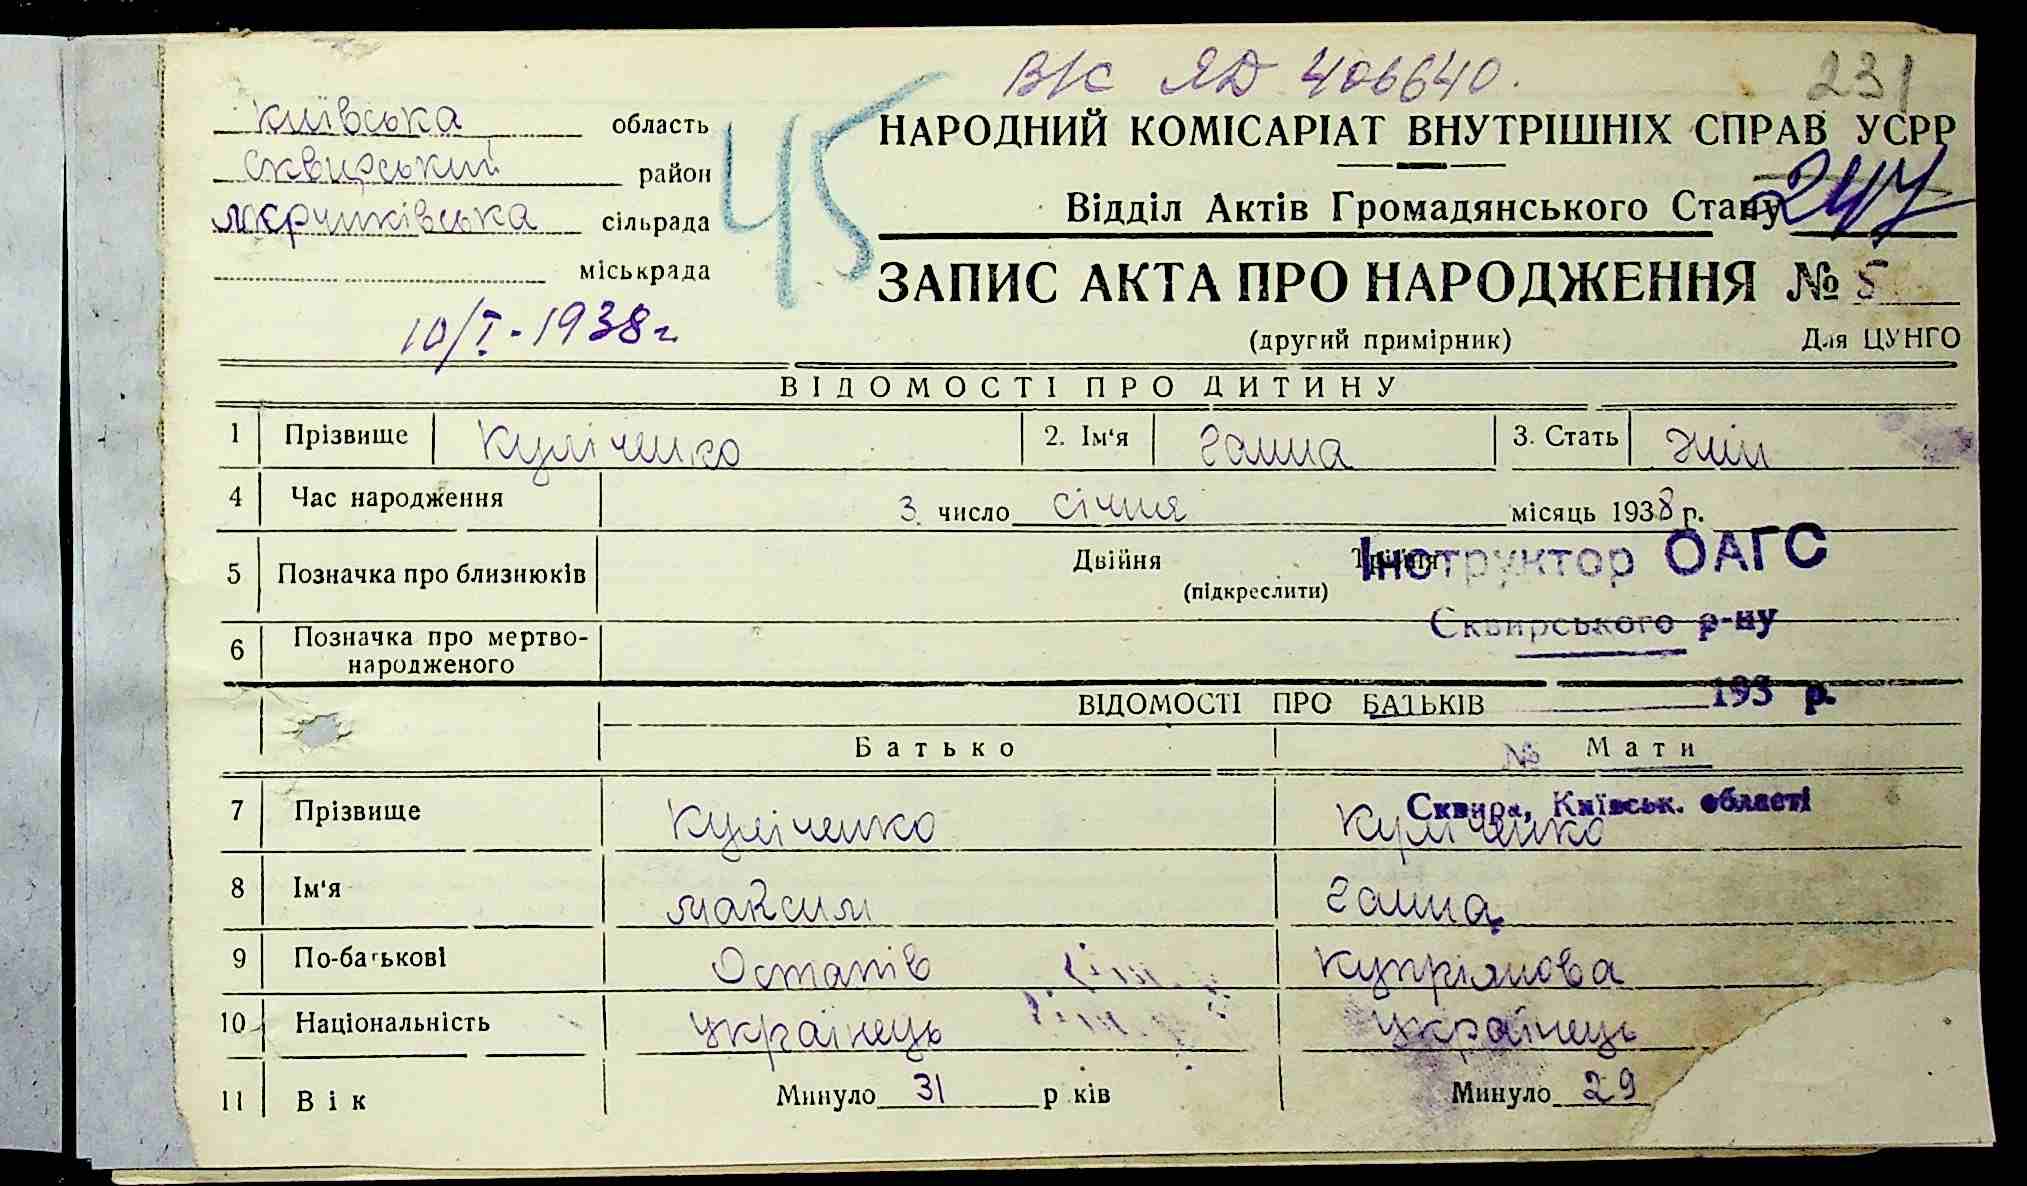 В/С ЯД 406640.
231
Київська область
Сквирський район
Мєрчиківська сільрада
міськрада
10/I-1938 г
45
НАРОДНИЙ КОМІСАРІАТ ВНУТРІШНІХ СПРАВ УСРР
Відділ Актів Громадянського Стану
247
ЗАПИС АКТА ПРО НАРОДЖЕННЯ № 5
(другий примірник) Для ЦУНГО
ВІДОМОСТІ ПРО ДИТИНУ
1 Прізвище Куліченко 2. Ім'я Ганна 3. Стать жін
4 Час народження 3 число січня місяць 1938 р.
5 Позначка про близнюків Двійня Трійня
(підкреслити)
Інструктор ОАГС
Сквирського р-ну
6 Позначка про мертво-
народженого
193 р.
ВІДОМОСТІ ПРО БАТЬКІВ
Батько № Мати
Сквира, Київськ. області
7 Прізвище Куліченко Куліченко
8 Ім'я Максим Ганна
9 По-батькові Остапів Купріянова
10 Національність українець українець
11 Вік Минуло 31 р ків Минуло 29